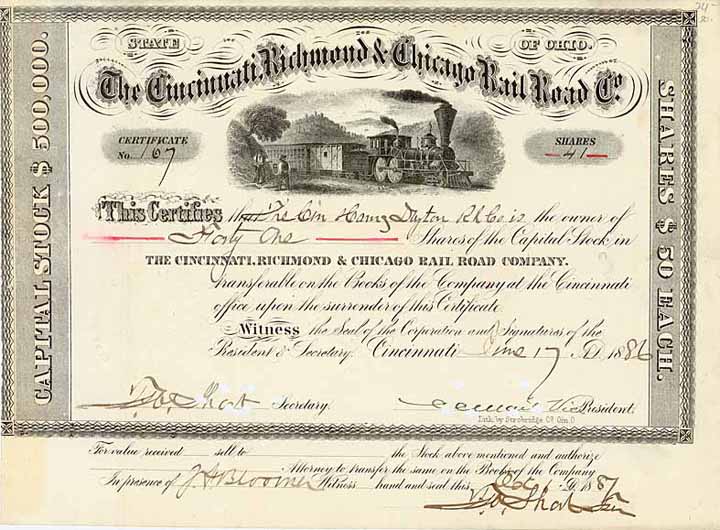 STATE OF OHIO.
The Cincinnati, Richmond & Chicago Rail Road Co.
CERTIFICATE No. 167
SHARES 41
CAPITAL STOCK $500,000.
SHARES $50 EACH.
This Certifies that The Cin Ham & Dayton RR Co is the owner of
Forty One Shares of the Capital Stock in
THE CINCINNATI, RICHMOND & CHICAGO RAIL ROAD COMPANY.
transferable on the Books of the Company at the Cincinnati
office upon the surrender of this Certificate.
Witness the Seal of the Corporation and Signatures of the
President & Secretary. Cincinnati June 17 A.D. 1886
F.H. Short Secretary. Vice President.
Lith. by Strobridge & Co. Cin. O.
For value received sell to the Stock above mentioned and authorize
Attorney to transfer the same on the Books of the Company
In presence of Witness hand and seal this Dec 1 A.D. 1887
F.H. Short